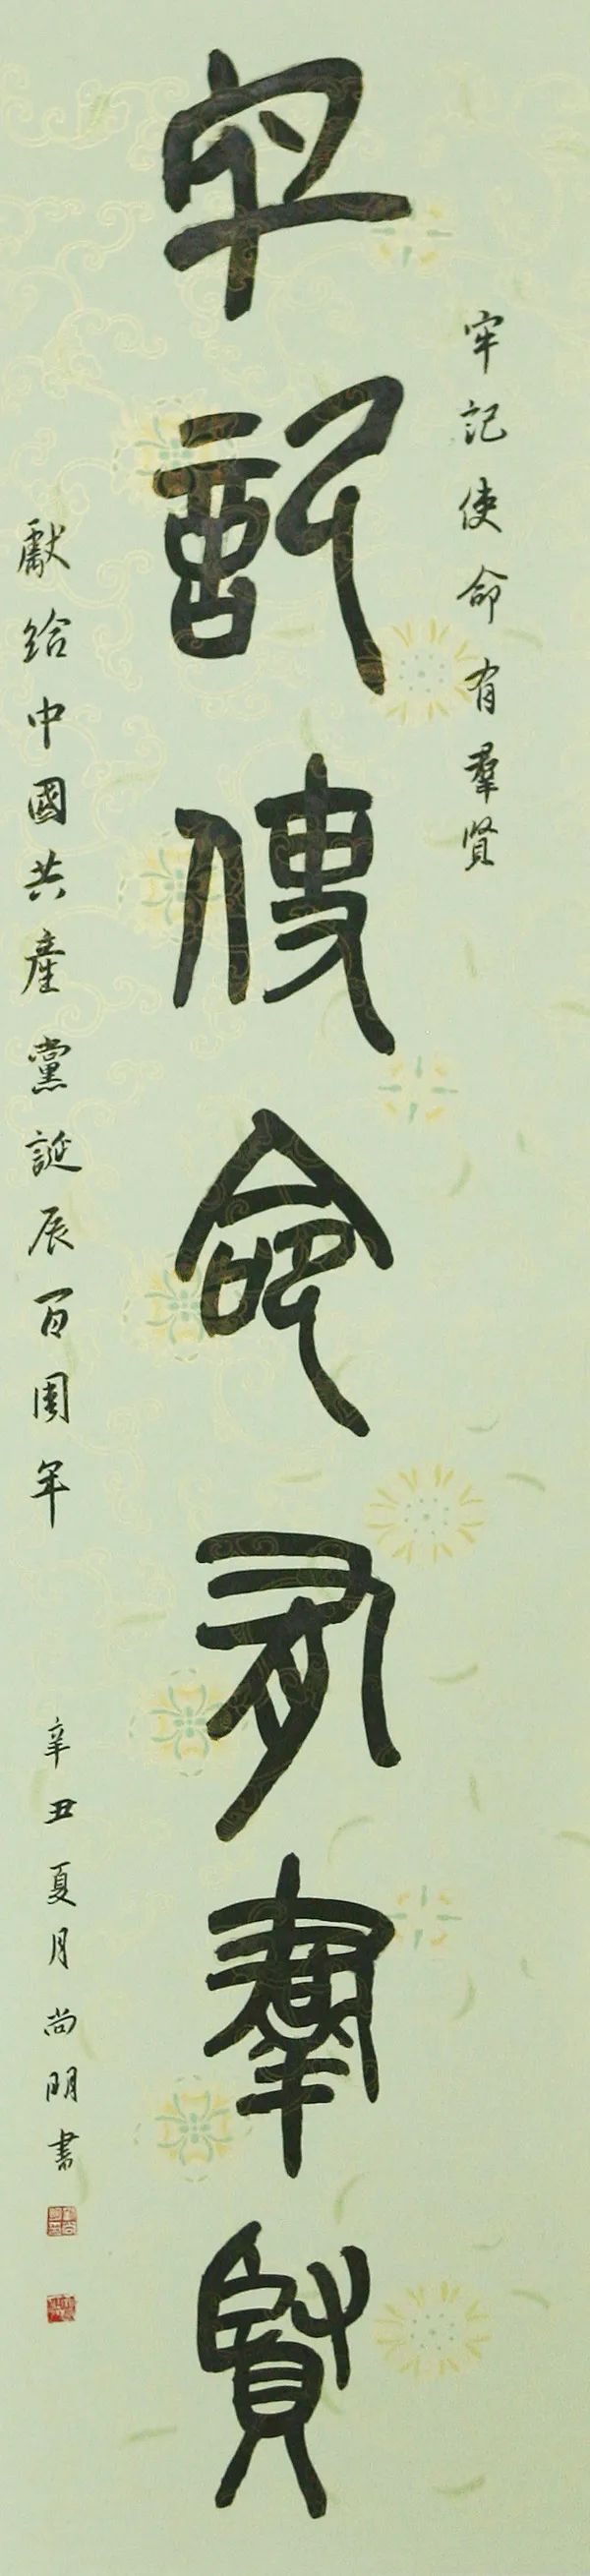 牢記使命有羣賢
牢記使命有羣賢
獻給中國共產黨誕辰百周年
辛丑夏月尚明書